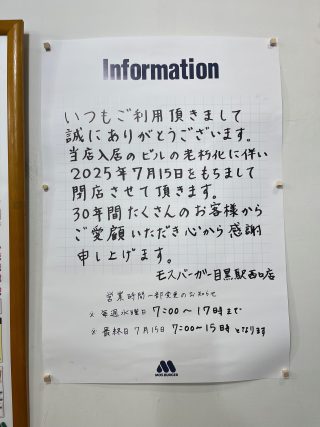 Information
いつもご利用頂きまして
誠にありがとうございます。
当店入居のビルの老朽化に伴い
2025年7月15日をもちまして
閉店させて頂ます。
30年間たくさんのお客様から
ご愛顧いただき心から感謝
申し上げます。
モスバーガー目黒駅西口店
営業時間一部変更のお知らせ
※毎週水曜日 7:00〜17時まで
※最終日7月15日 7:00〜15時となります
MOS BURGER